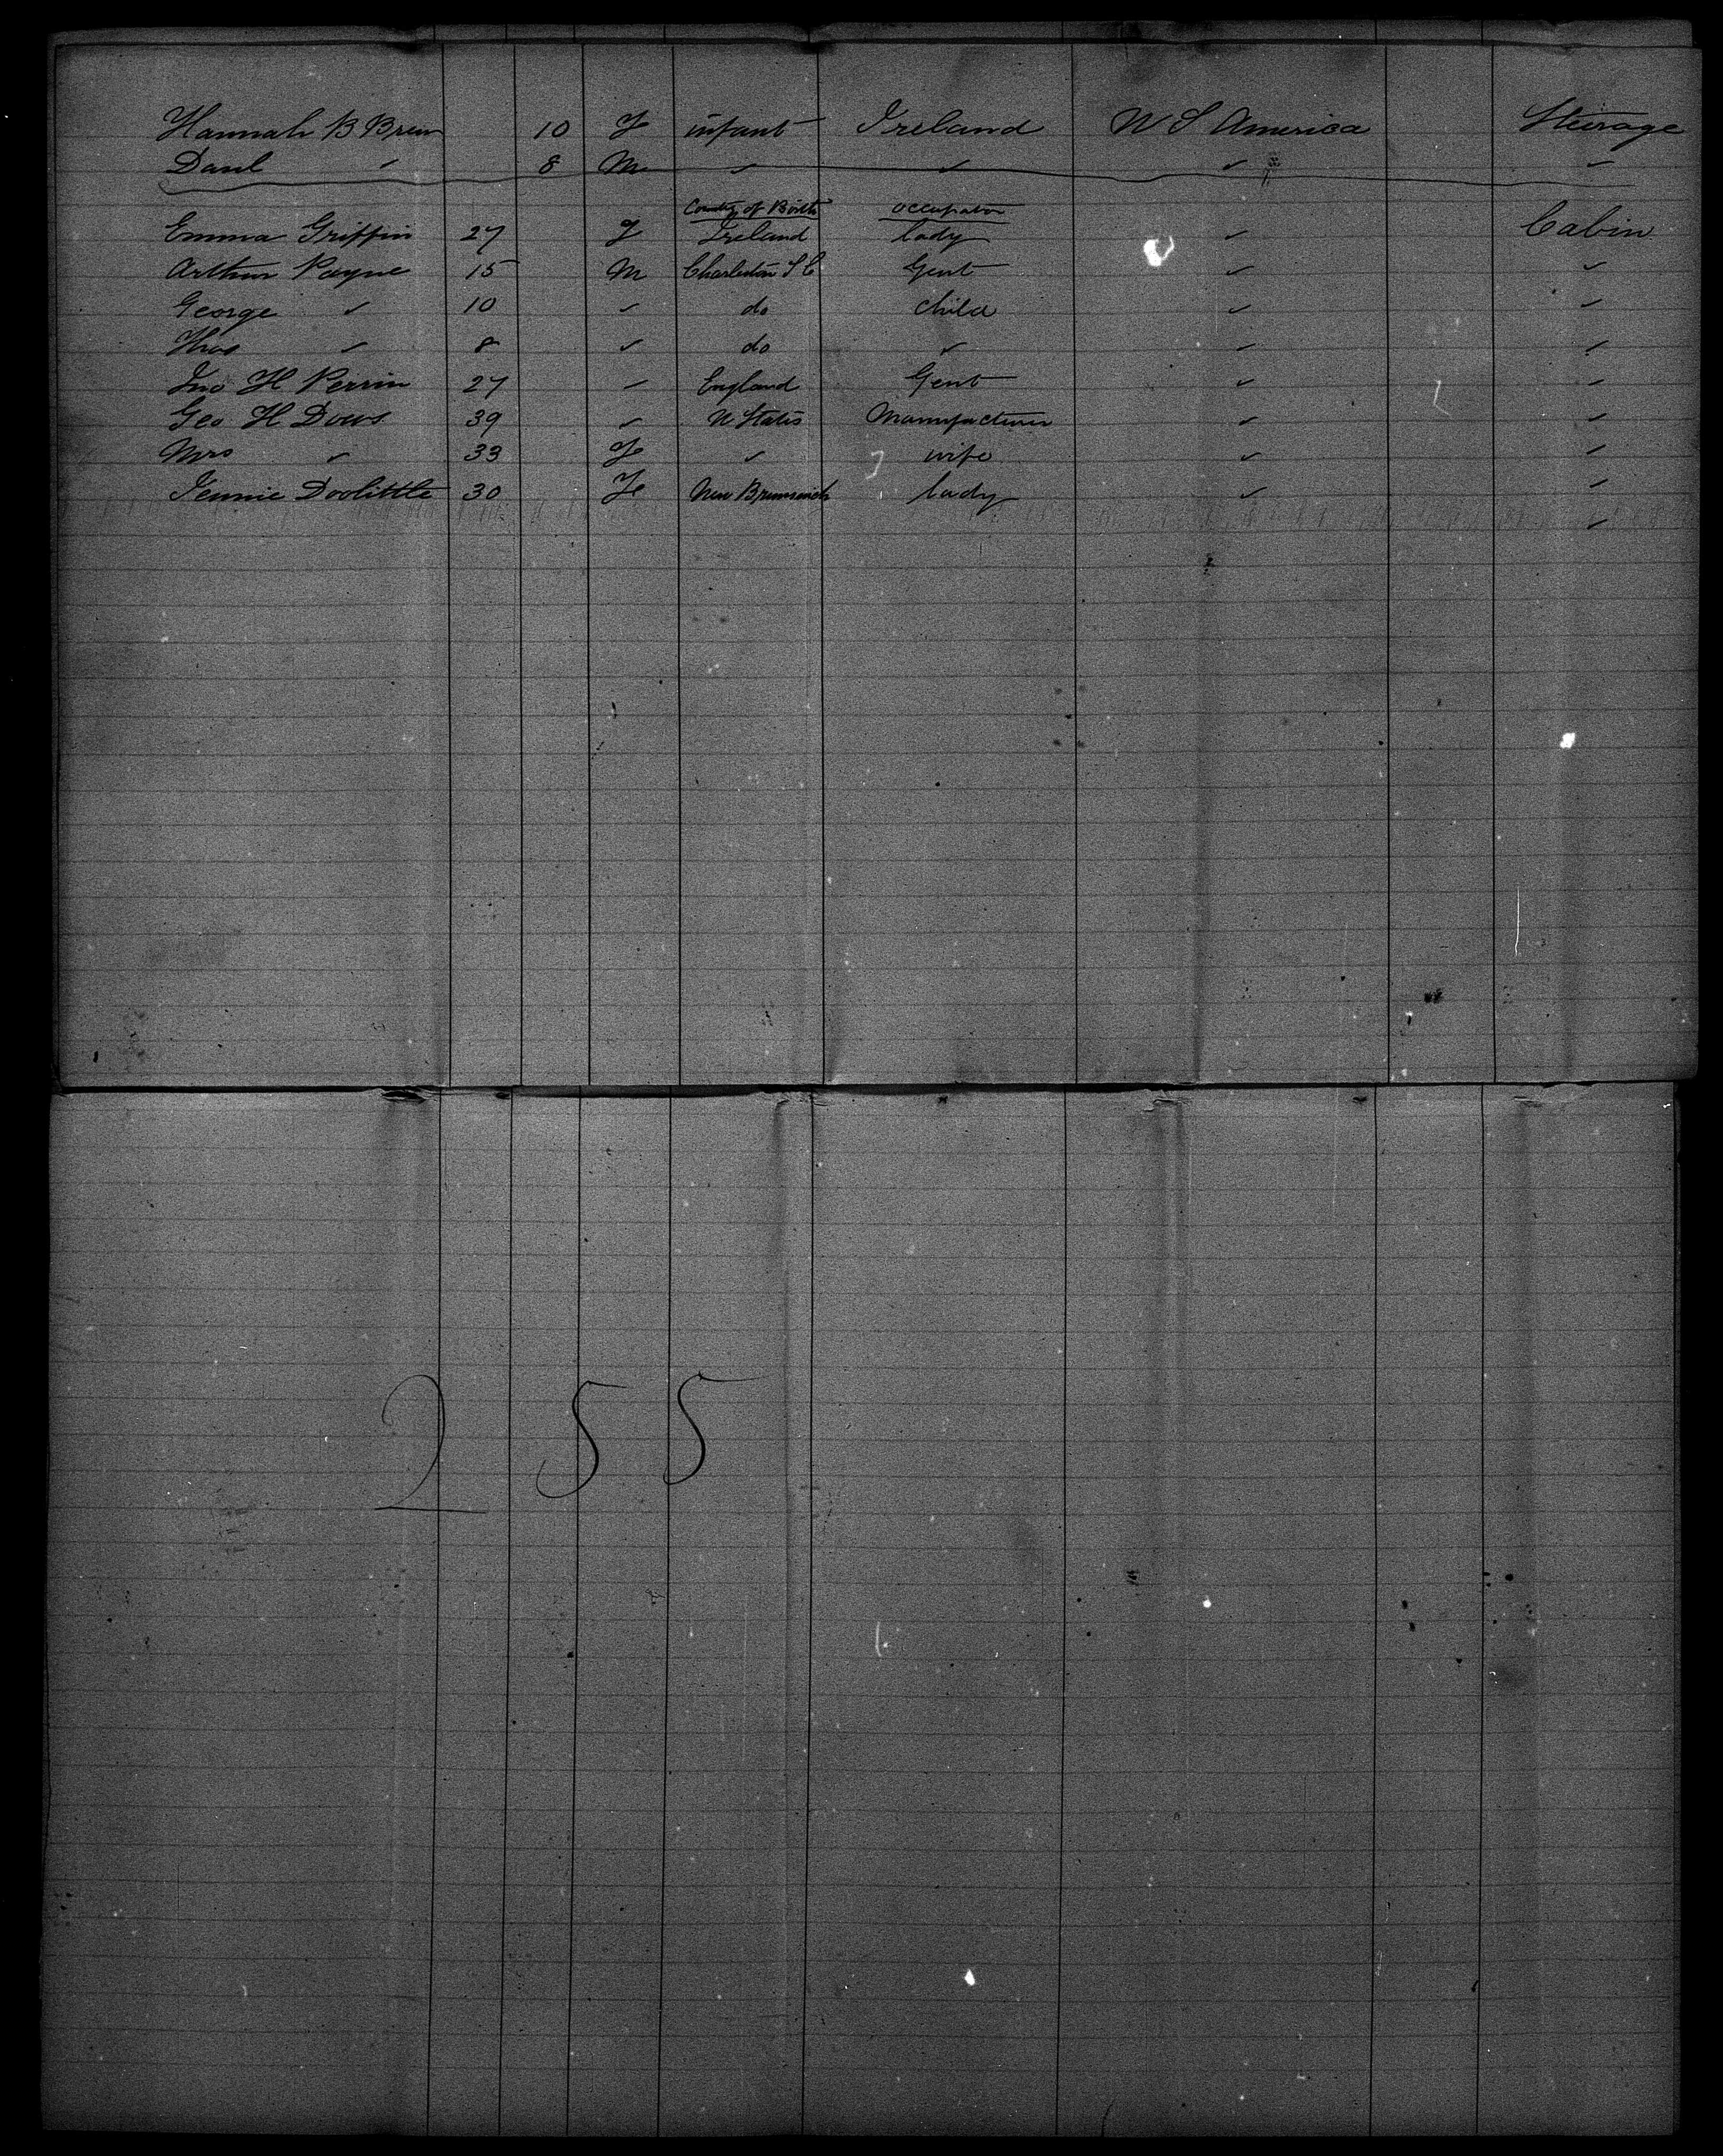 Hannah B Bren 10 F infant Ireland U S America Steirage
Danl ✓ 8 M ✓ ✓ ✓ ✓
Country of Birth occupation
Emma Griffin 27 F Ireland lady ✓ Cabin
Arthur Payne 15 M Charleston S C Gent ✓ ✓
George ✓ 10 ✓ do child ✓ ✓
Thos ✓ 8 ✓ do ✓ ✓ ✓
Jno H Perrin 27 ✓ England Gent ✓ ✓
Geo H Dows 39 ✓ U States Manufacturer ✓ ✓
Mrs ✓ 33 F ✓ wife ✓ ✓
Jennie Doolittle 30 F New Brunswick lady ✓ ✓
✓
2 5 5